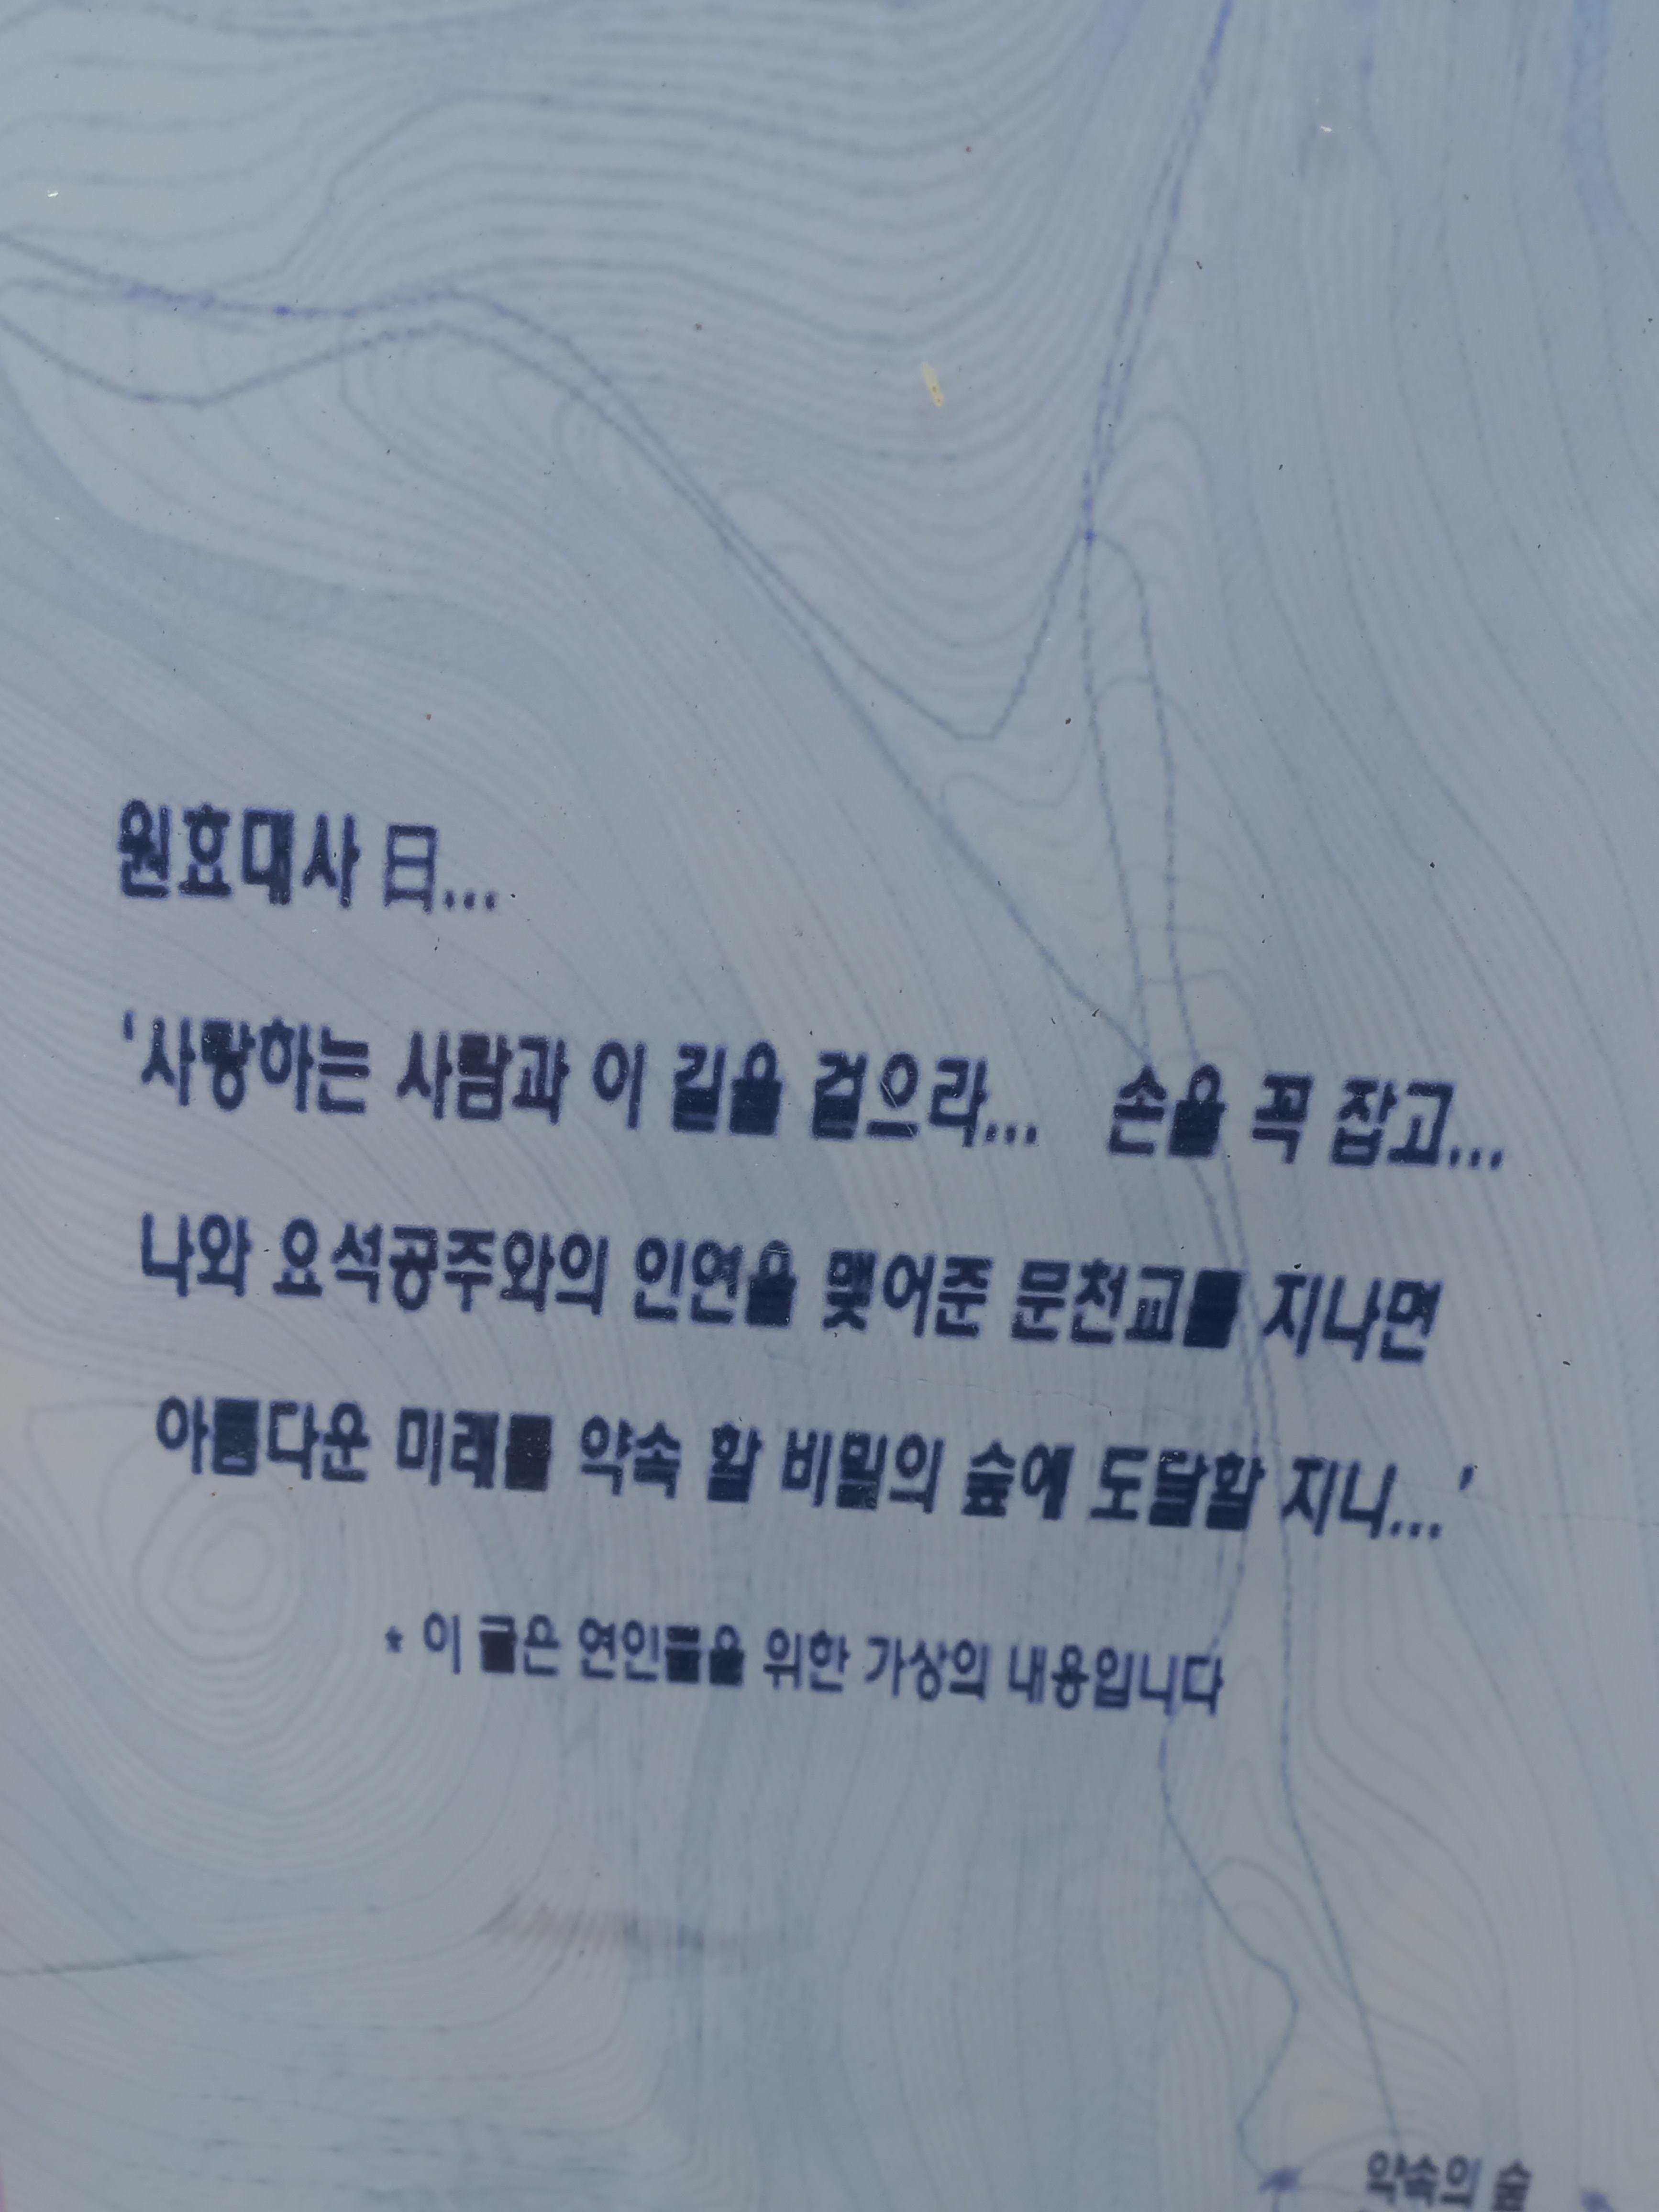 원효대사 曰...
'사랑하는 사람과 이 길을 걸으라... 손을 꼭 잡고...
나와 요석공주와의 인연을 맺어준 문천교를 지나면
아름다운 미래를 약속 할 비밀의 숲에 도달할 지니...'
* 이 글은 연인들을 위한 가상의 내용입니다
약속의 숲